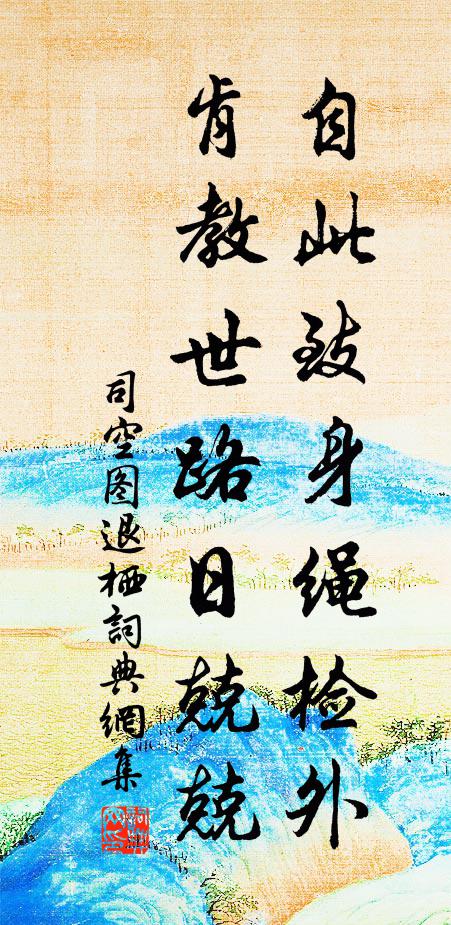 自此致身绳检外
肯教世路日兢兢
司空图退栖詞典網集